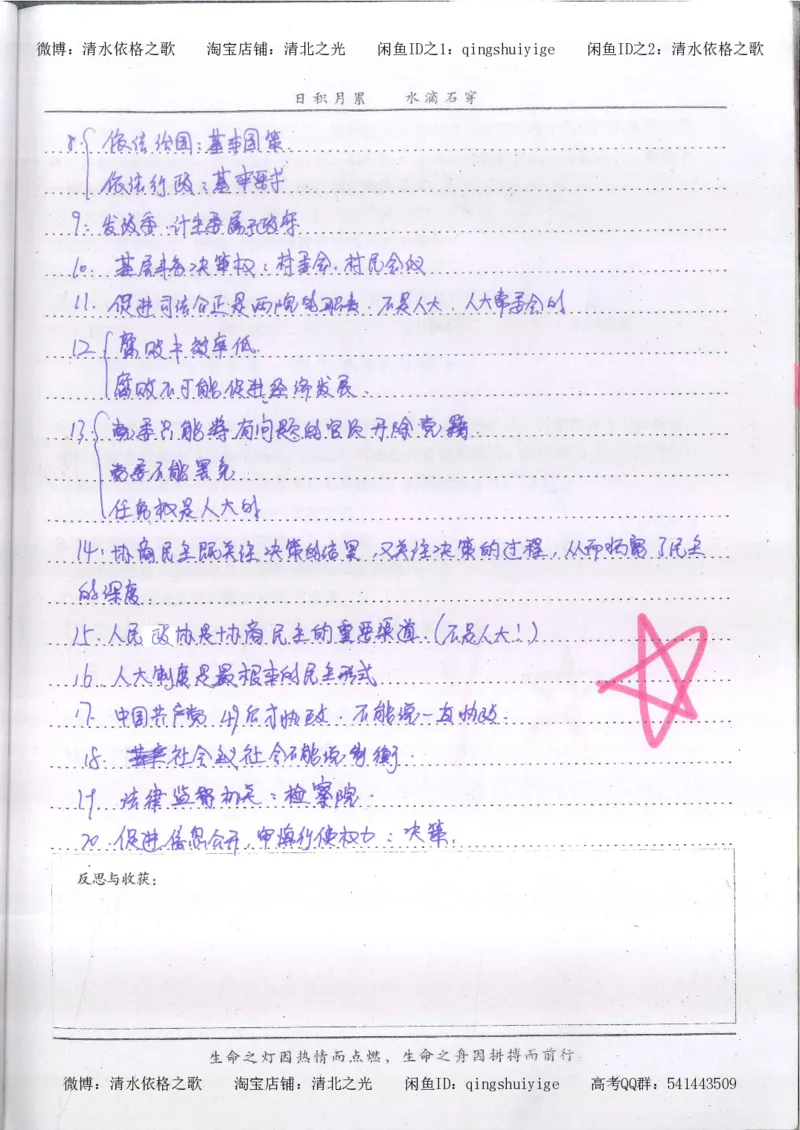 微博：清水依格之歌 淘宝店铺：清北之光 闲鱼ID之1：qingshuiyige 闲鱼ID之2：清水依格之歌
日积月累 水滴石穿
8. 依法治国：基本国策.
依法行政：基本要求
9. 发改委.计生委属于政府
10. 基层事务决策权：村委会.村民会议
11. 促进司法公正是两院的职责.不是人大.人大常委会的
12. 腐败≠效率低.
腐败不可能促进经济发展.
13. 党委只能将有问题的官员开除党籍.
党委不能罢免
任免权是人大的
14. 协商民主既关注决策的结果,又关注决策的过程,从而拓宽了民主
的深度.
15. 人民政协是协商民主的重要渠道.(不是人大!)
16. 人大制度是最根本的民主形式
17. 中国共产党 49后才执政.不能说一直执政.
18. 社会议社会不能说制衡.
19. 法律监督机关：检察院.
20. 促进信息公开,审慎行使权力：决策.
反思与收获：
生命之灯因热情而点燃，生命之舟因拼搏而前行。
微博：清水依格之歌 淘宝店铺：清北之光 闲鱼ID：qingshuiyige 高考QQ群：541443509